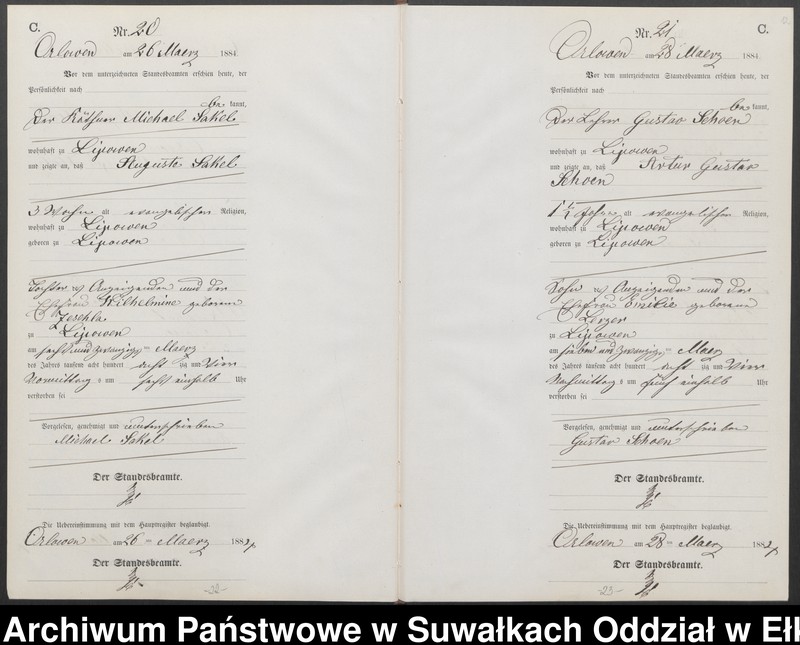 C.
Nr. 20
Orlowen am 26 Maerz 1884.
Vor dem unterzeichneten Standesbeamten erschien heute, der
Persönlichkeit nach
be kannt,
Der Käthner Michael Sakel
wohnhaft zu Lipowen
und zeigte an, daß Auguste Sakel
3 Wochen alt evangelischer Religion,
wohnhaft zu Lipowen
geboren zu Lipowen
Tochter des Anzeigenden und der
Ehefrau Wilhelmine geborene
Jeschka
zu Lipowen
am sechs und zwanzigsten Maerz
des Jahres tausend acht hundert acht zig und vier
Vormittags um sechs einhalb Uhr
verstorben sei
Vorgelesen, genehmigt und unterschrieben
Michael Sakel
Der Standesbeamte.
Die Uebereinstimmung mit dem Hauptregister beglaubigt.
Orlowen am 26 ten Maerz 1884
Der Standesbeamte.
-22-
C.
Nr. 21
Orlowen am 28 Maerz 1884.
Vor dem unterzeichneten Standesbeamten erschien heute, der
Persönlichkeit nach
be kannt,
Der Lehrer Gustav Schoen
wohnhaft zu Lipowen
und zeigte an, daß Artur Gustav
Schoen
1 1/2 Jahre alt evangelischer Religion,
wohnhaft zu Lipowen
geboren zu Lipowen
Sohn des Anzeigenden und der
Ehefrau Emilie geborene
zu Lipowen
am sieben und zwanzigsten Maerz
des Jahres tausend acht hundert acht zig und vier
Nachmittags um fünf einhalb Uhr
verstorben sei
Vorgelesen, genehmigt und unterschrieben
Gustav Schoen
Der Standesbeamte.
Die Uebereinstimmung mit dem Hauptregister beglaubigt.
Orlowen am 28 ten Maerz 1884
Der Standesbeamte.
-23-
Archiwum Państwowe w Suwałkach Oddział w Ełk